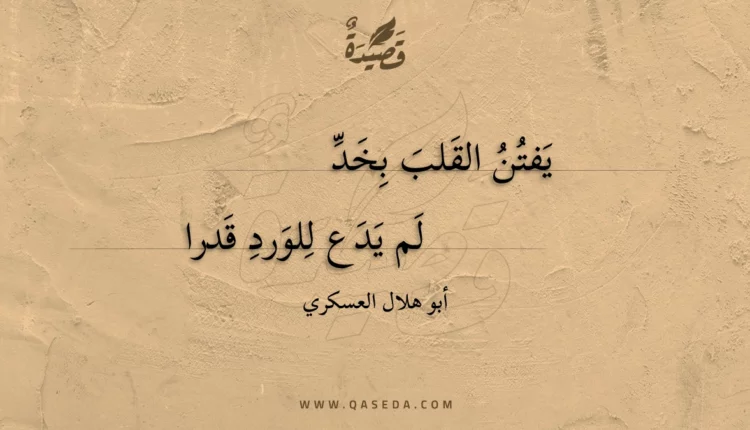 قَصِيدَةٌ
يَفتُنُ القَلبَ بِخَدِّ
لَم يَدَع لِلوَردِ قَدرا
أبو هلال العسكري
WWW.QASEDA.COM